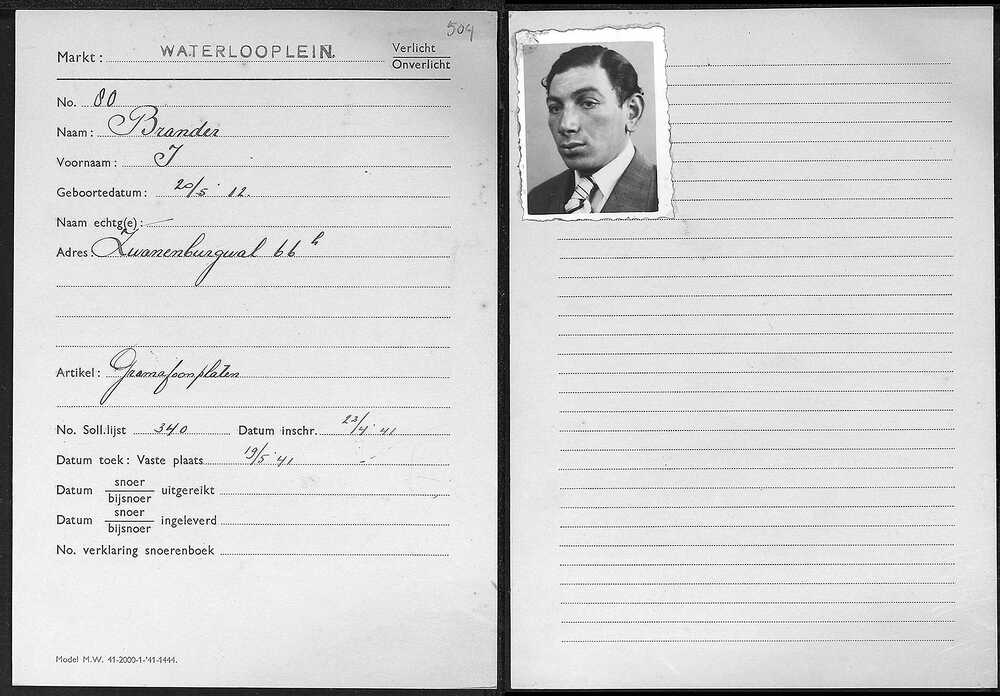 504
Markt: WATERLOOPLEIN. Verlicht
Onverlicht
No. 80
Naam: Brander
Voornaam: J
Geboortedatum: 20/5 '12.
Naam echtg(e):
Adres: Zwanenburgwal 66 h
Artikel: Gramafoonplaten
No. Soll.lijst 340 Datum inschr. 22/4 '41
Datum toek: Vaste plaats 19/5 '41
Datum snoer uitgereikt
bijsnoer
Datum snoer ingeleverd
bijsnoer
No. verklaring snoerenboek
Model M.W. 41-2000-1-'41-1444.